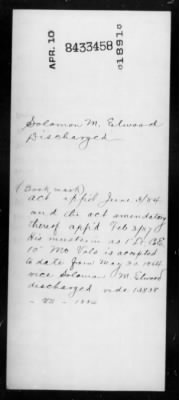 APR. 10
8433458
1891
Solomon M. Elwood
Discharged
(Book mark)
Act app'd June 3/84
and the act amendatory
thereof app'd Feb 3/87
His muster in as 1" Lt Co E
10" Mo Vols is accepted
to date from May 30, 1864
vice Solomon M Elwood
discharged vide 12838